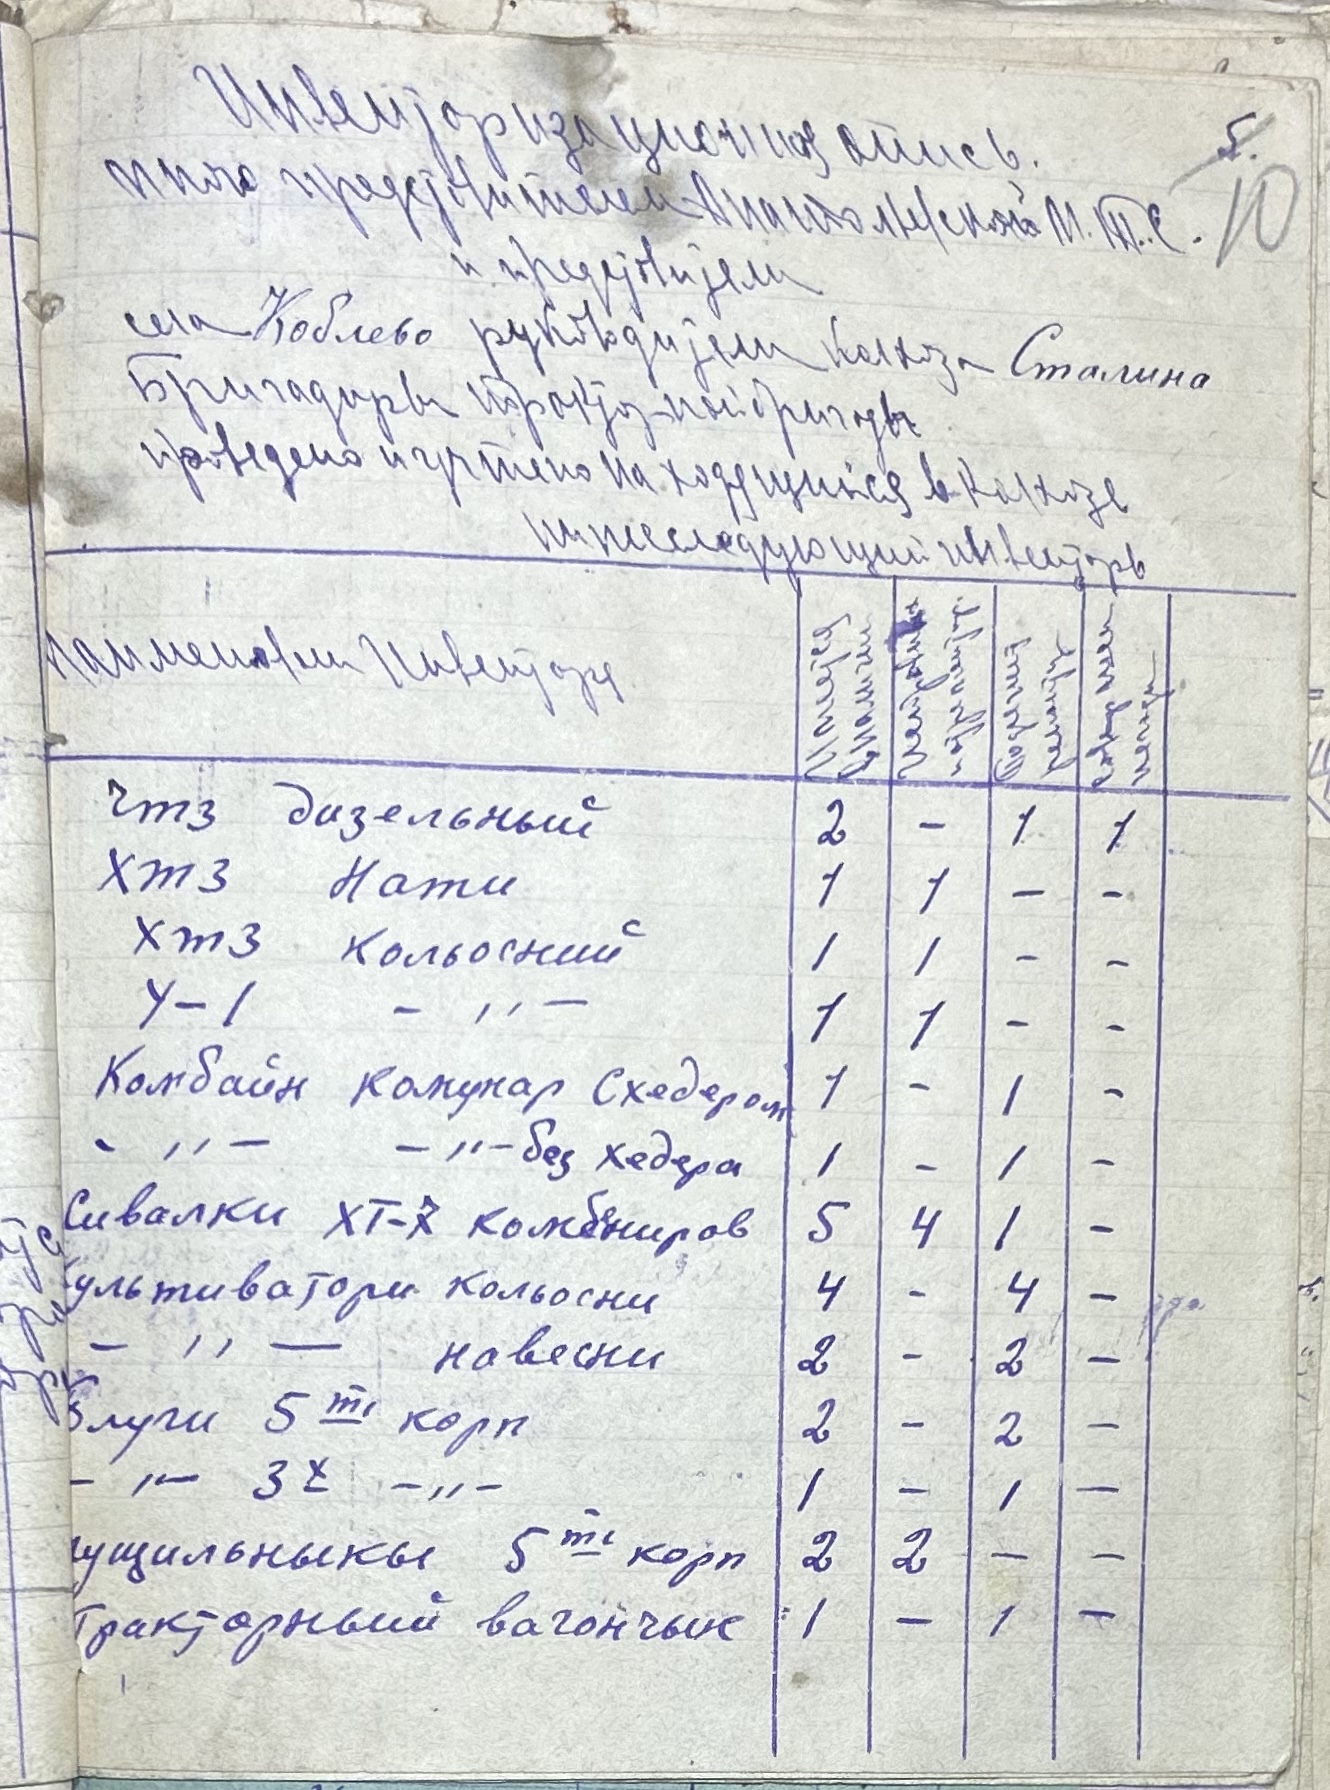 Инвентаризационная опись.
5.
10
мною представителем Анатольевской М.Т.С.
и представителем
села Коблево руководителем колхоза Сталина
Бригадиром тракторной бригады
проведено и учтено находящийся в колхозе
нижеследующий инвентарь
Наименован Инвентаря
Имеется в наличии
ремонта
ЧТЗ дизельный 2 - 1 1
ХТЗ Нати 1 1 - -
ХТЗ Кольосний 1 1 - -
У-1 - ,, - 1 1 - -
Комбайн комунар Схедером 1 - 1 -
- ,, - - ,, - без хедера 1 - 1 -
Сивалки ХТ-7 комбениров 5 4 1 -
культиватори кольосни 4 - 4 -
- ,, - навесни 2 - 2 -
Плуги 5ти корп 2 - 2 -
- ,, - 3х - ,, - 1 - 1 -
лущильныкы 5ти корп 2 2 - -
Тракторный вагончык 1 - 1 -